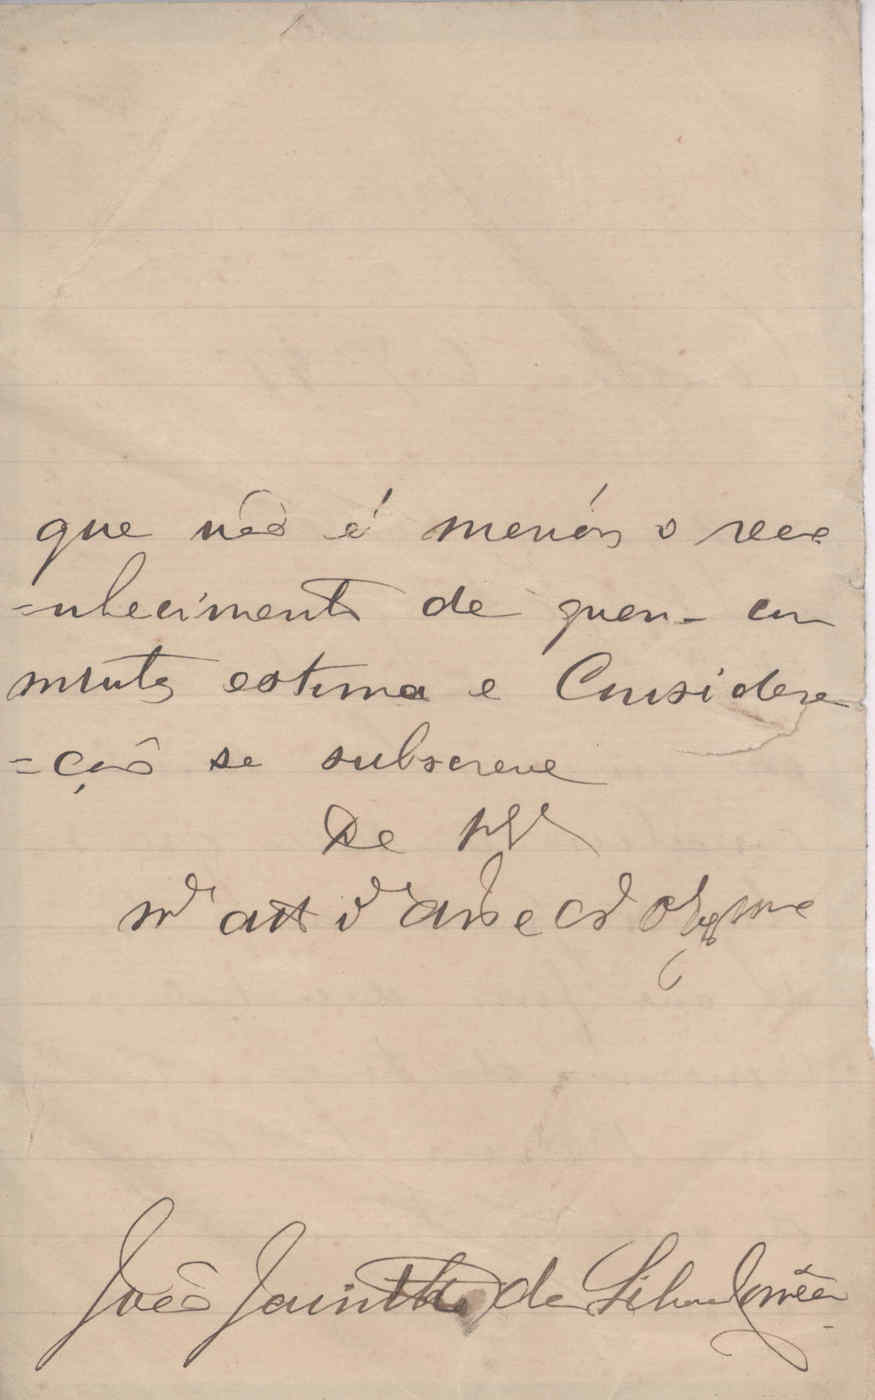 que não é menór o reco
=nhecimento de quem - com
muita estima e Considera
=ção se subscreve
De
mto att vor amo e Co obrgmo
João Jacintho da Silva Corrêa